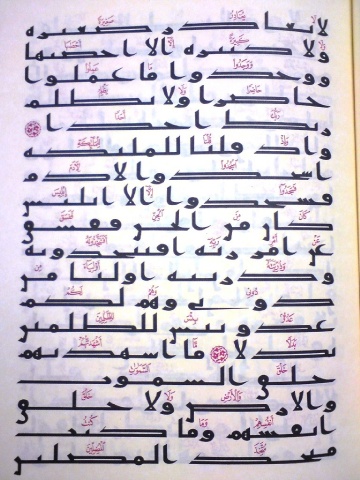 لا يغادر صغيره
ولا كبيره الا احصيها
ووجدوا ما عملوا
حاضرا ولا يظلم
ربك احدا
واذ قلنا للمليكه
اسجدوا لادم
فسجدوا الا ابليس
كان من الجن ففسق
عن امر ربه افتتخذونه
وذريته اوليا من
دوني وهم لكم
عدو بيس للظلمين
بدلا ما اشهدتهم
خلق السموت
والارض ولا خلق
انفسهم وما كنت
متخذ المضلين